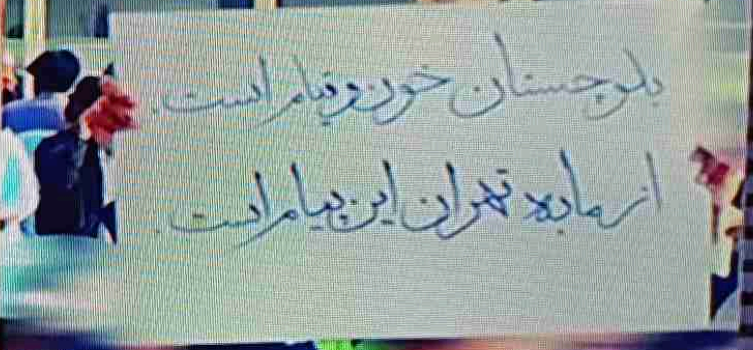 بلوچستان خون و قیام است.
از ما به تهران این پیام است.